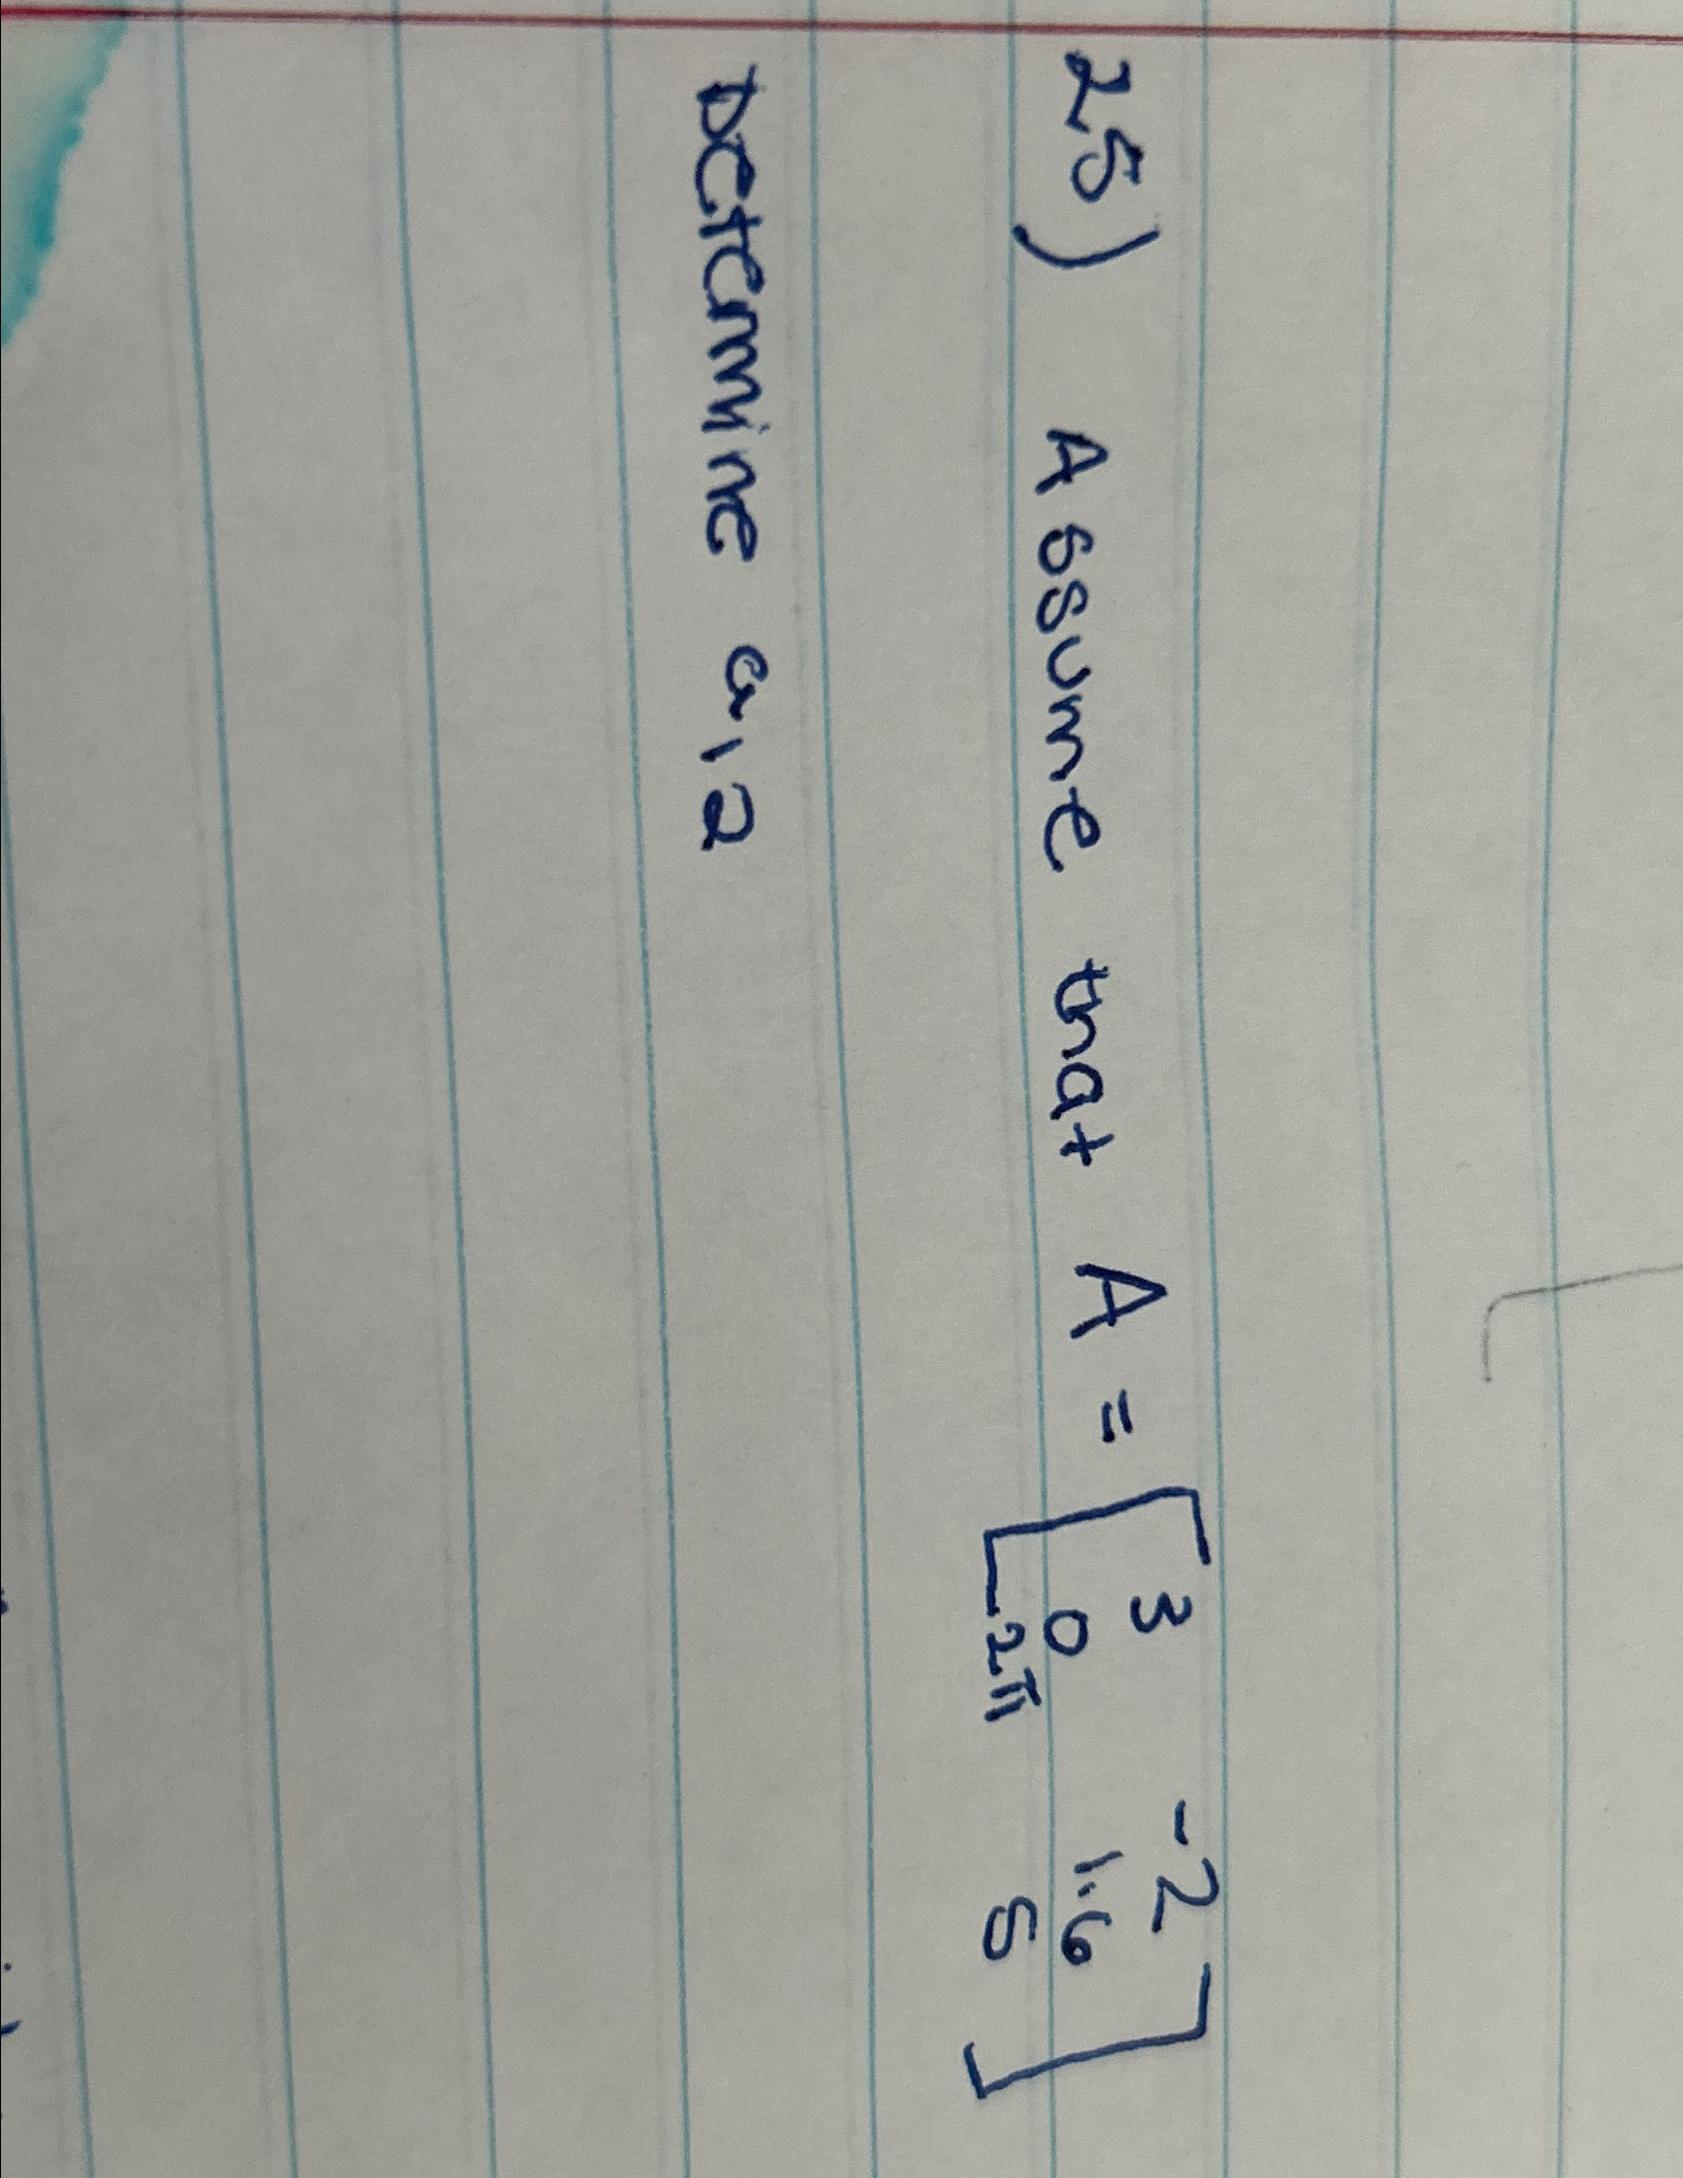 25) Assume that A = [ 3 -2
0 1.6
2π 5 ]
Determine a12